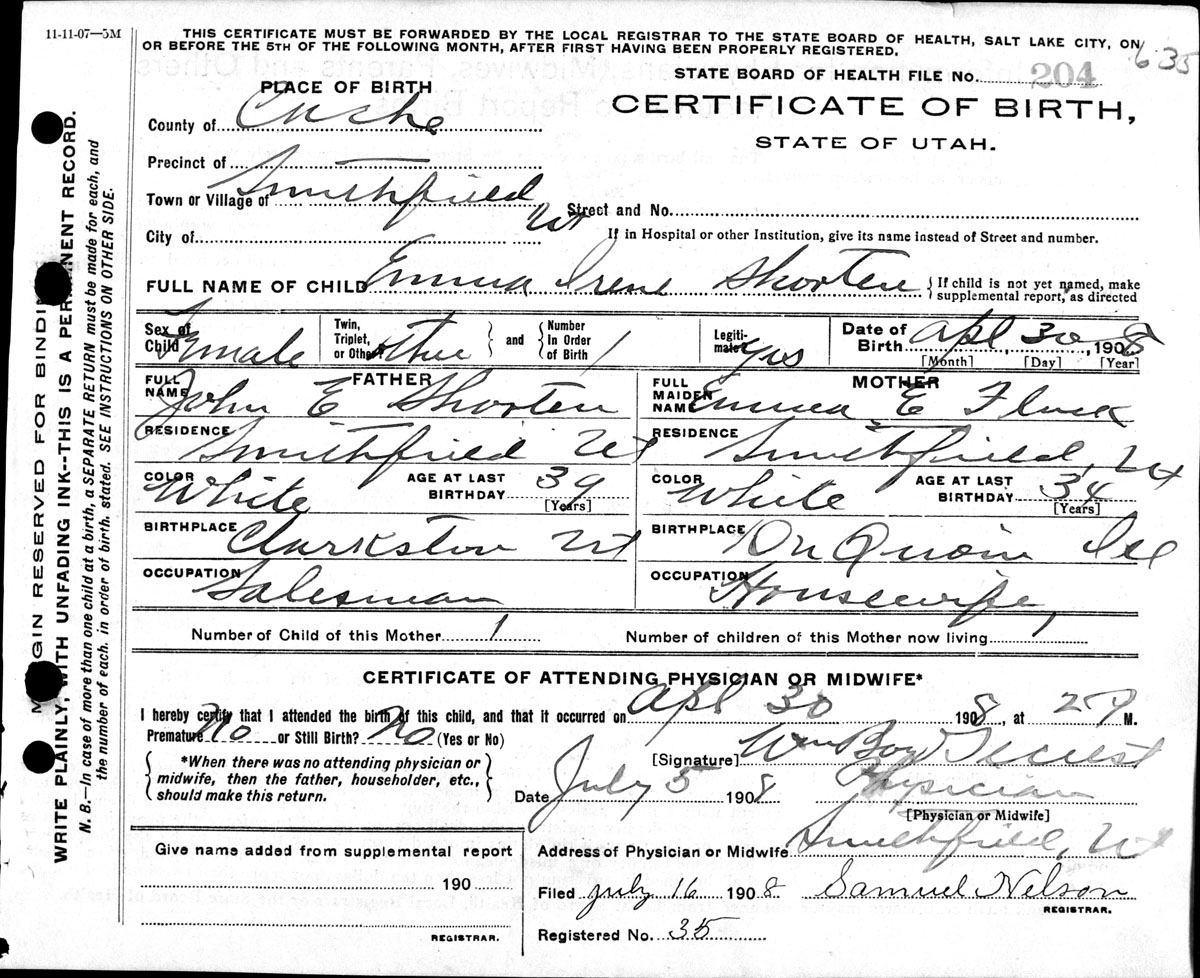 11-11-07—5M
THIS CERTIFICATE MUST BE FORWARDED BY THE LOCAL REGISTRAR TO THE STATE BOARD OF HEALTH, SALT LAKE CITY, ON
OR BEFORE THE 5TH OF THE FOLLOWING MONTH, AFTER FIRST HAVING BEEN PROPERLY REGISTERED.
635
STATE BOARD OF HEALTH FILE No. 204
PLACE OF BIRTH
CERTIFICATE OF BIRTH,
STATE OF UTAH.
County of Cache
Precinct of —
Town or Village of Smithfield
Ut
Street and No.
City of
If in Hospital or other Institution, give its name instead of Street and number.
FULL NAME OF CHILD Emma Irene Shorten { If child is not yet named, make supplemental report, as directed
Sex of Child Female Twin, Triplet, or Other and Number In Order of Birth 1 Legitimate? Yes Date of Birth Apl 30, 1908
[Month] [Day] [Year]
FATHER MOTHER
FULL NAME John E Shorten FULL MAIDEN NAME Emma E
RESIDENCE Smithfield Ut RESIDENCE Smithfield, Ut
COLOR White AGE AT LAST BIRTHDAY 39 [Years] COLOR White AGE AT LAST BIRTHDAY 34 [Years]
BIRTHPLACE Clarkston Ut BIRTHPLACE Du Quoin Ill
OCCUPATION Salesman OCCUPATION Housewife,
Number of Child of this Mother 1 Number of children of this Mother now living 1
CERTIFICATE OF ATTENDING PHYSICIAN OR MIDWIFE*
I hereby certify that I attended the birth of this child, and that it occurred on Apl 30 1908, at 2 M.
Premature No or Still Birth? No (Yes or No)
[Signature]
*When there was no attending physician or
midwife, then the father, householder, etc.,
should make this return.
Date July 5 1908 Physician
[Physician or Midwife]
Address of Physician or Midwife Smithfield, Ut
Give name added from supplemental report
190
REGISTRAR.
Filed July 16 1908 Samuel Nelson
REGISTRAR.
Registered No. 35
MARGIN RESERVED FOR BINDING
WRITE PLAINLY, WITH UNFADING INK--THIS IS A PERMANENT RECORD.
N. B.—In case of more than one child at a birth, a SEPARATE RETURN must be made for each, and
the number of each, in order of birth, stated. SEE INSTRUCTIONS ON OTHER SIDE.